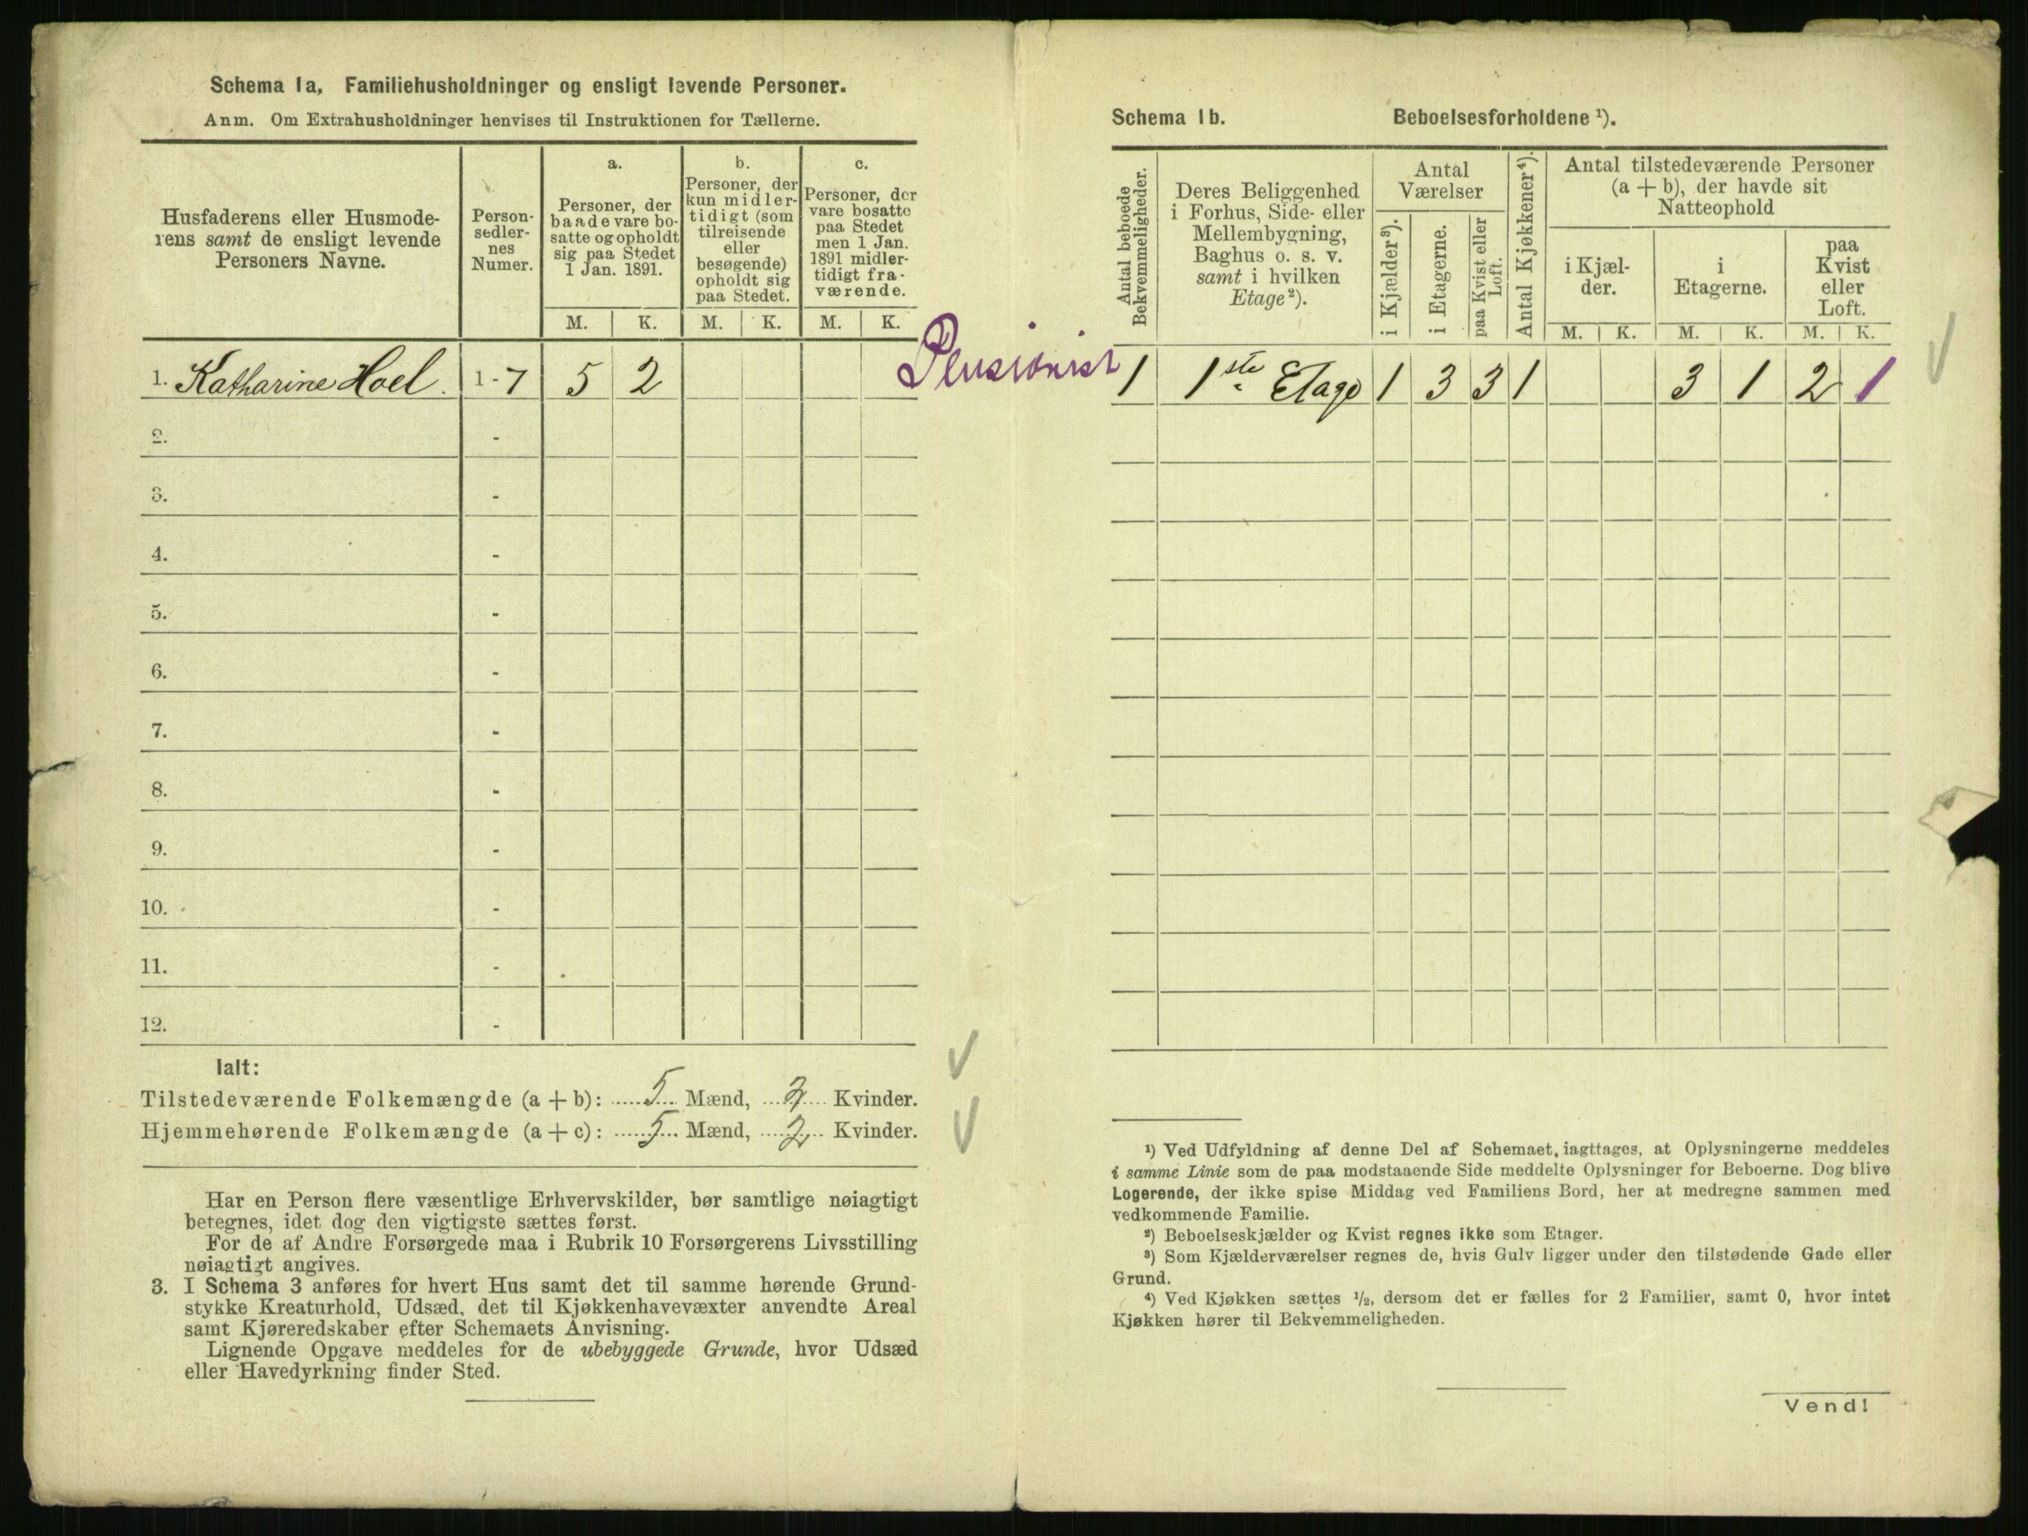 Schema 1a, Familiehusholdninger og ensligt levende Personer.
Anm. Om Extrahusholdninger henvises til Instruktionen for Tællerne.
Husfaderens eller Husmode-
rens samt de ensligt levende
Personers Navne.
Person-
sedler-
nes
Numer.
a.
Personer, der
baade vare bo-
satte og opholdt
sig paa Stedet
1 Jan. 1891.
b.
Personer, der
kun midler-
tidigt (som
tilreisende
eller
besøgende)
opholdt sig
paa Stedet.
c.
Personer, der
vare bosatte
paa Stedet
men 1 Jan.
1891 midler-
tidigt fra-
værende.
M. K. M. K. M. K.
1. Katharine Hoel. 1 - 7 5 2
Pensionist
2. -
3. -
4. -
5. -
6. -
7. -
8. -
9. -
10. -
11. -
12. -
Ialt:
Tilstedeværende Folkemængde (a + b): 5 Mænd, 2 Kvinder.
Hjemmehørende Folkemængde (a + c): 5 Mænd, 2 Kvinder.
Har en Person flere væsentlige Erhvervskilder, bør samtlige nøiagtigt
betegnes, idet dog den vigtigste sættes først.
For de af Andre Forsørgede maa i Rubrik 10 Forsørgerens Livsstilling
nøiagtigt angives.
3. I Schema 3 anføres for hvert Hus samt det til samme hørende Grund-
stykke Kreaturhold, Udsæd, det til Kjøkkenhavevæxter anvendte Areal
samt Kjøreredskaber efter Schemaets Anvisning.
Lignende Opgave meddeles for de ubebyggede Grunde, hvor Udsæd
eller Havedyrkning finder Sted.
Schema 1b. Beboelsesforholdene ¹).
Antal beboede
Bekvemmeligheder.
Deres Beliggenhed
i Forhus, Side- eller
Mellembygning,
Baghus o. s. v.
samt i hvilken
Etage ²).
Antal
Værelser
i Kjælder ³).
i Etagerne.
paa Kvist eller
Loft.
Antal Kjøkkener ⁴).
Antal tilstedeværende Personer
(a + b), der havde sit
Natteophold
i Kjæl-
der.
i
Etagerne.
paa
Kvist
eller
Loft.
M. K. M. K. M. K.
1 1ste Etage 1 3 3 1 3 1 2 1
¹) Ved Udfyldning af denne Del af Schemaet, iagttages, at Oplysningerne meddeles
i samme Linie som de paa modstaaende Side meddelte Oplysninger for Beboerne. Dog blive
Logerende, der ikke spise Middag ved Familiens Bord, her at medregne sammen med
vedkommende Familie.
²) Beboelseskjælder og Kvist regnes ikke som Etager.
³) Som Kjælderværelser regnes de, hvis Gulv ligger under den tilstødende Gade eller
Grund.
⁴) Ved Kjøkken sættes ½, dersom det er fælles for 2 Familier, samt 0, hvor intet
Kjøkken hører til Bekvemmeligheden.
Vend!